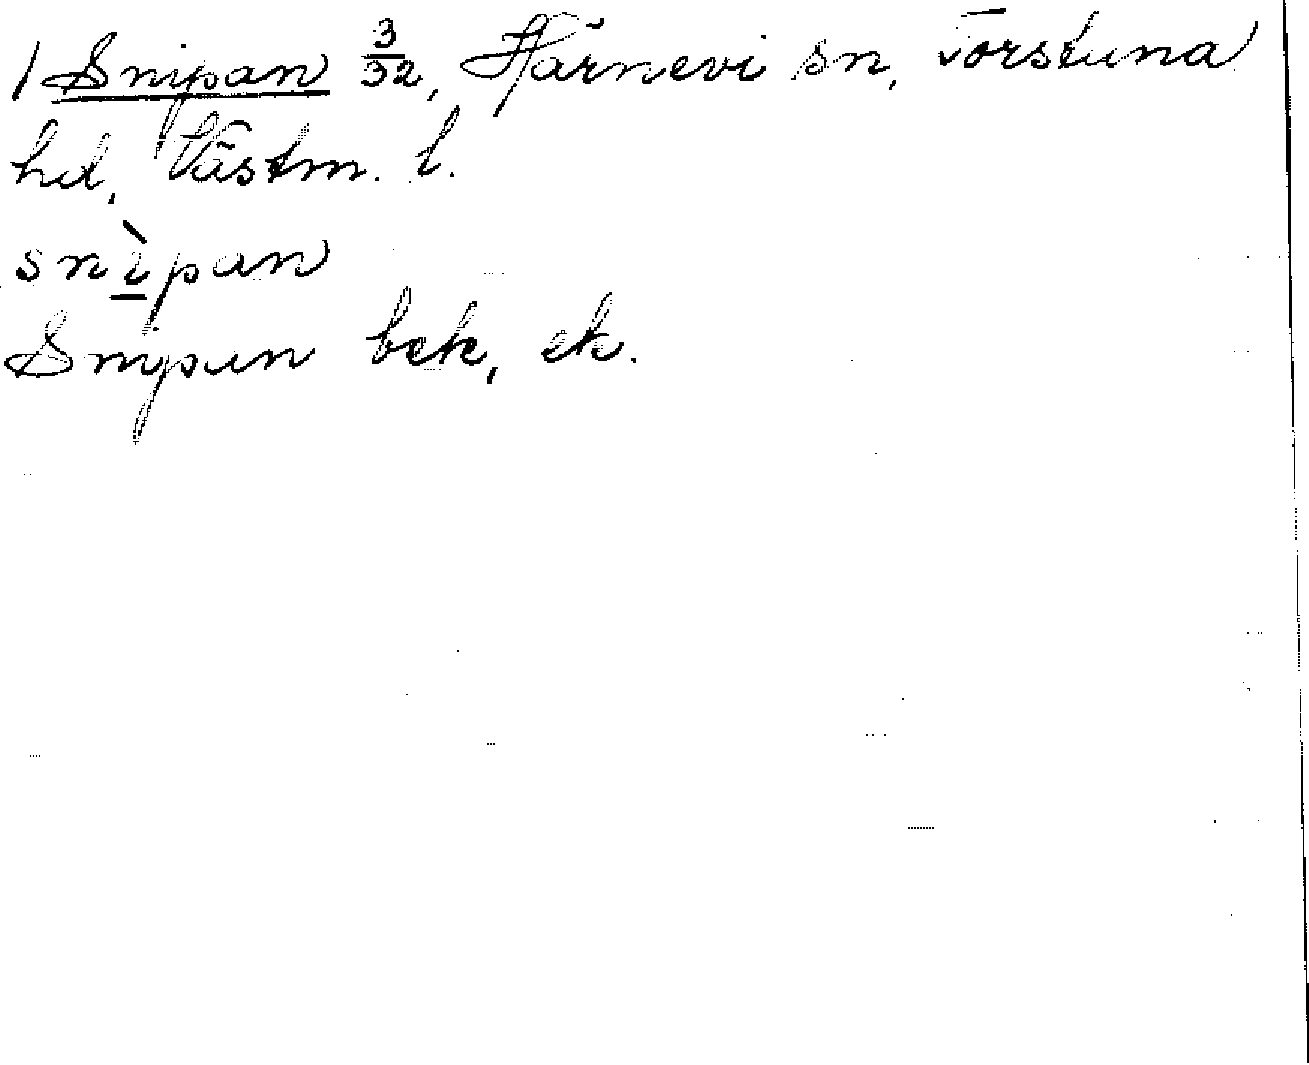 / Snipan 3/32, Härnevi sn, Torstuna
hd, Västm. l.
snìpan
Snipan bek, ek.